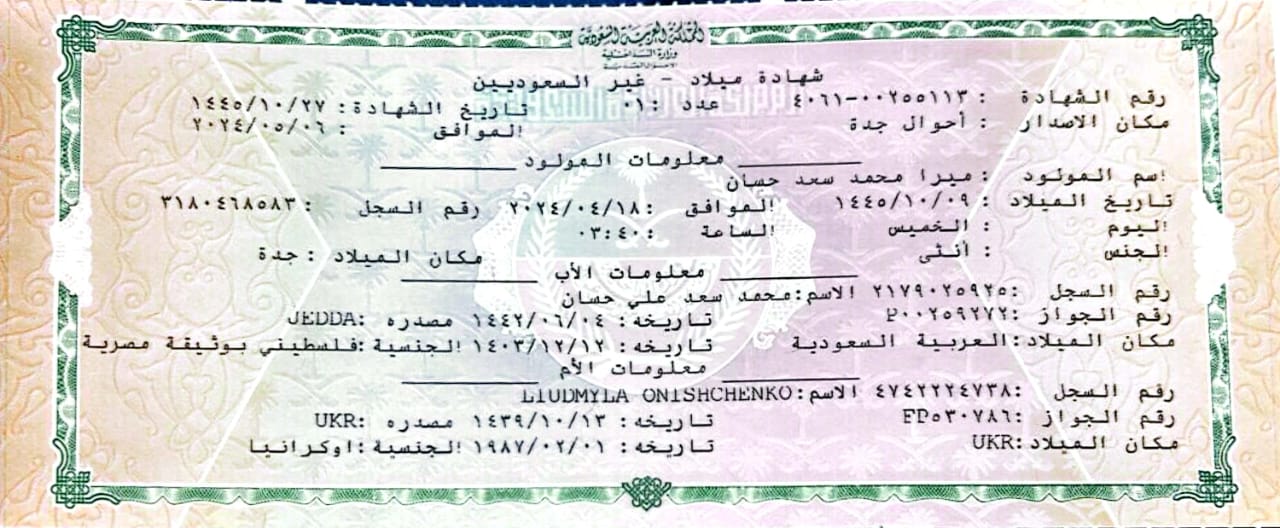 المملكة العربية السعودية
وزارة الداخلية
الأحوال المدنية
شهادة ميلاد - غير السعوديين
رقم الشهادة : ٤٠٦١-٠٠٢٥٥١١٣ عدد : ٠١ تاريخ الشهادة : ١٤٤٥/١٠/٢٧
مكان الاصدار : أحوال جدة الموافق : ٢٠٢٤/٠٥/٠٦
معلومات المولود
اسم المولود : ميرا محمد سعد حسان
تاريخ الميلاد : ١٤٤٥/١٠/٠٩ الموافق : ٢٠٢٤/٠٤/١٨ رقم السجل : ٣١٨٠٤٦٨٥٨٣
اليوم : الخميس الساعة : ٠٣:٤٠
الجنس : أنثى مكان الميلاد : جدة
معلومات الأب
رقم السجل : ٢١٧٩٠٢٥٩٢٥ الاسم: محمد سعد علي حسان
رقم الجواز : P٠٠٢٥٩٢٧٢ تاريخه : ١٤٤٢/٠٦/٠٤ مصدره : JEDDA
مكان الميلاد: العربية السعودية تاريخه : ١٤٠٣/١٢/١٢ الجنسية : فلسطيني بوثيقة مصرية
معلومات الأم
رقم السجل : ٤٧٤٢٢٢٤٧٣٨ الاسم: LIUDMYLA ONISHCHENKO
رقم الجواز : FP٥٣٠٧٨٦ تاريخه : ١٤٣٩/١٠/١٣ مصدره : UKR
مكان الميلاد: UKR تاريخه : ١٩٨٧/٠٢/٠١ الجنسية : اوكرانيا